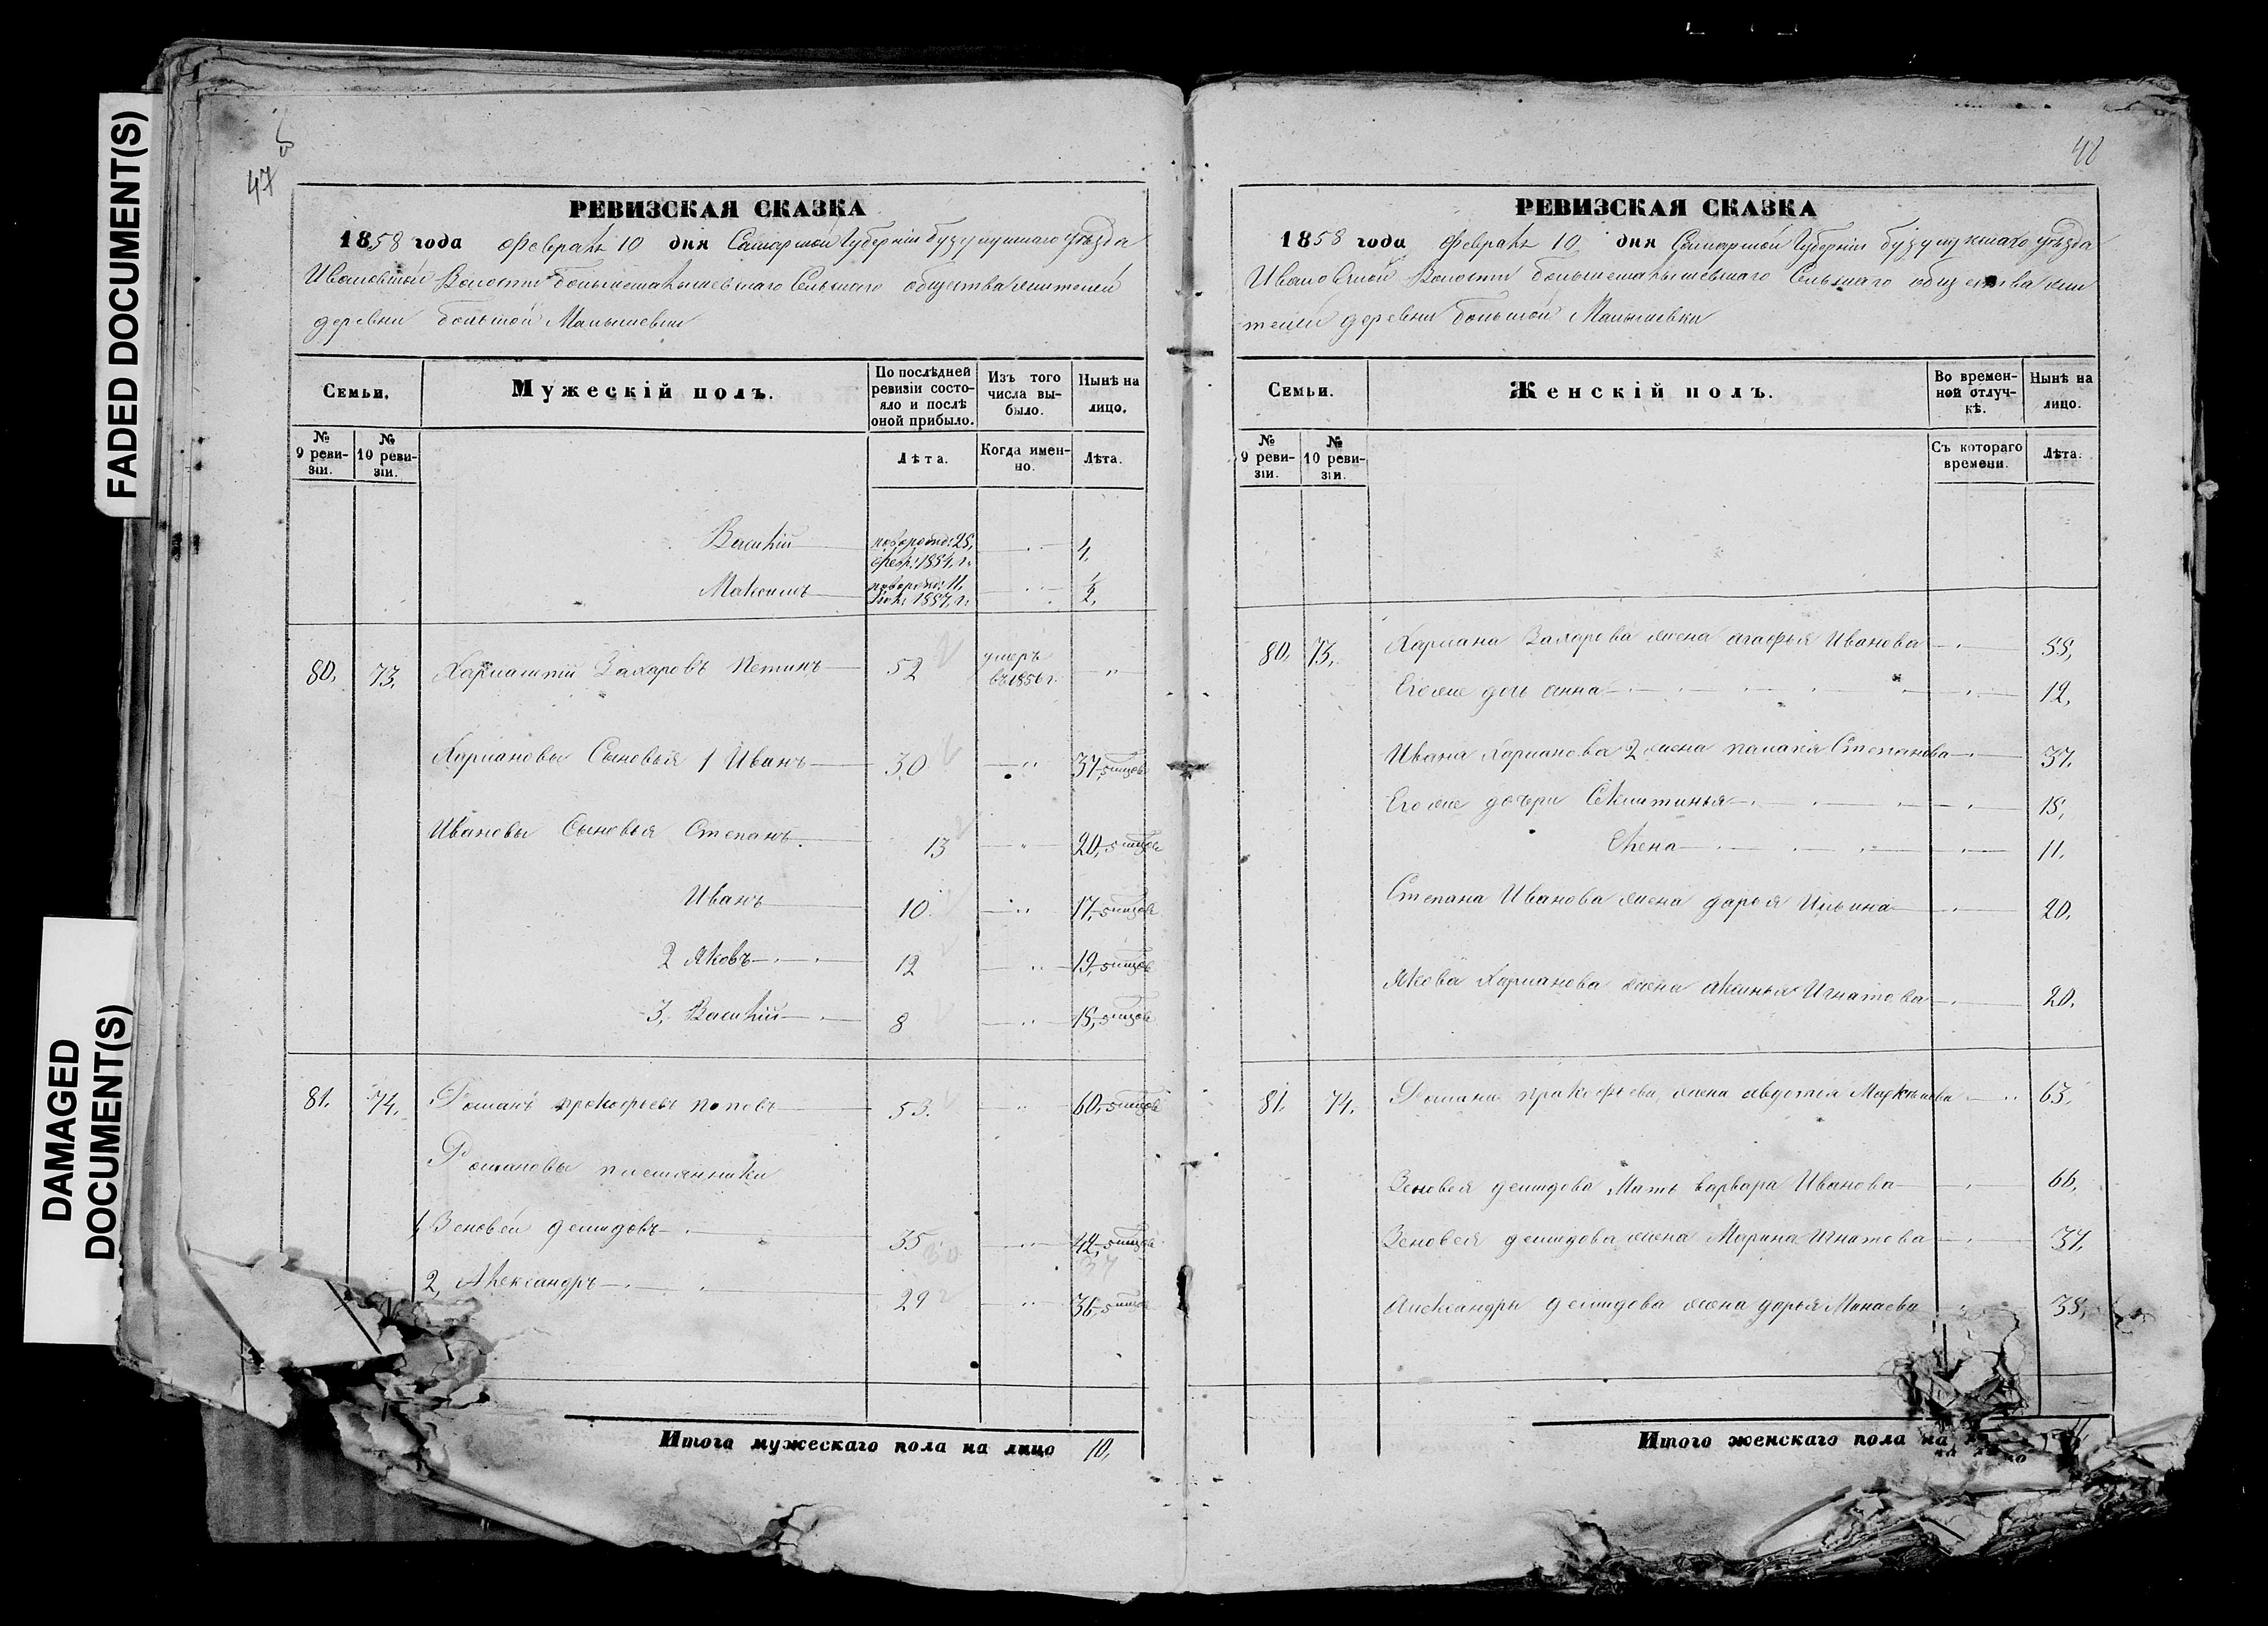 FADED DOCUMENT(S)
DAMAGED
DOCUMENT(S)
47
РЕВИЗСКАЯ СКАЗКА
1858 года февраля 10 дня Самарской Губернии бузулукскаго уезда
Ивановской Волости большемалышевскаго Сельскаго общества жителей
деревни большой Малышевки
Семьи.
Мужескій полъ.
По послѣдней
ревизіи состо-
яло и послѣ
оной прибыло.
Изъ того
числа вы-
было.
Нынѣ на
лицо.
№
9 реви-
зіи.
№
10 реви-
зіи.
Лѣта.
Когда имен-
но.
Лѣта.
Василий новорожд: 25, 4,
февр: 1854, г.
Максимъ новорожд: 11, ½,
1857, г.
80, 73, Захаровъ 52 умеръ
въ 1856 г.
Сыновья 1 Иванъ 30 37,
Ивановы Сыновья Степанъ 13 20,
Иванъ 10 17,
2 Яковъ 12 19,
3, Василий 8 15,
81, 74, Романъ прокофьевъ поповъ 53. 60,
Романовы племянники
1, Зеновей демидовъ 35 42,
30 37
2, Александръ 29 36,
Итого мужескаго пола на лицо 10,
48
РЕВИЗСКАЯ СКАЗКА
1858 года февраля 10 дня Самарской Губернии бузулукскаго уезда
Ивановской Волости большемалышевскаго Сельскаго общества жи
телей деревни большой Малышевки
Семьи.
Женскій полъ.
Во времен-
ной отлуч-
кѣ.
Нынѣ на
лицо.
№
9 реви-
зіи.
№
10 реви-
зіи.
Съ котораго
времени.
Лѣта.
80, 73, Захарова жена агафья Иванова 55,
Его же дочь анна 12,
Ивана 2 жена палагея Степанова 37,
Его же дочери 15,
Елена 11,
Степана Иванова жена дарья Ильина 20,
Якова жена аксинья Игнатова 20,
81, 74, Романа пракофьева жена авдотья 63,
Зеновея демидова Мать варвара Иванова 66,
Зеновея демидова жена Марина Игнатова 37,
Александры демидова жена дарья Минаева 38,
Итого женскаго пола на